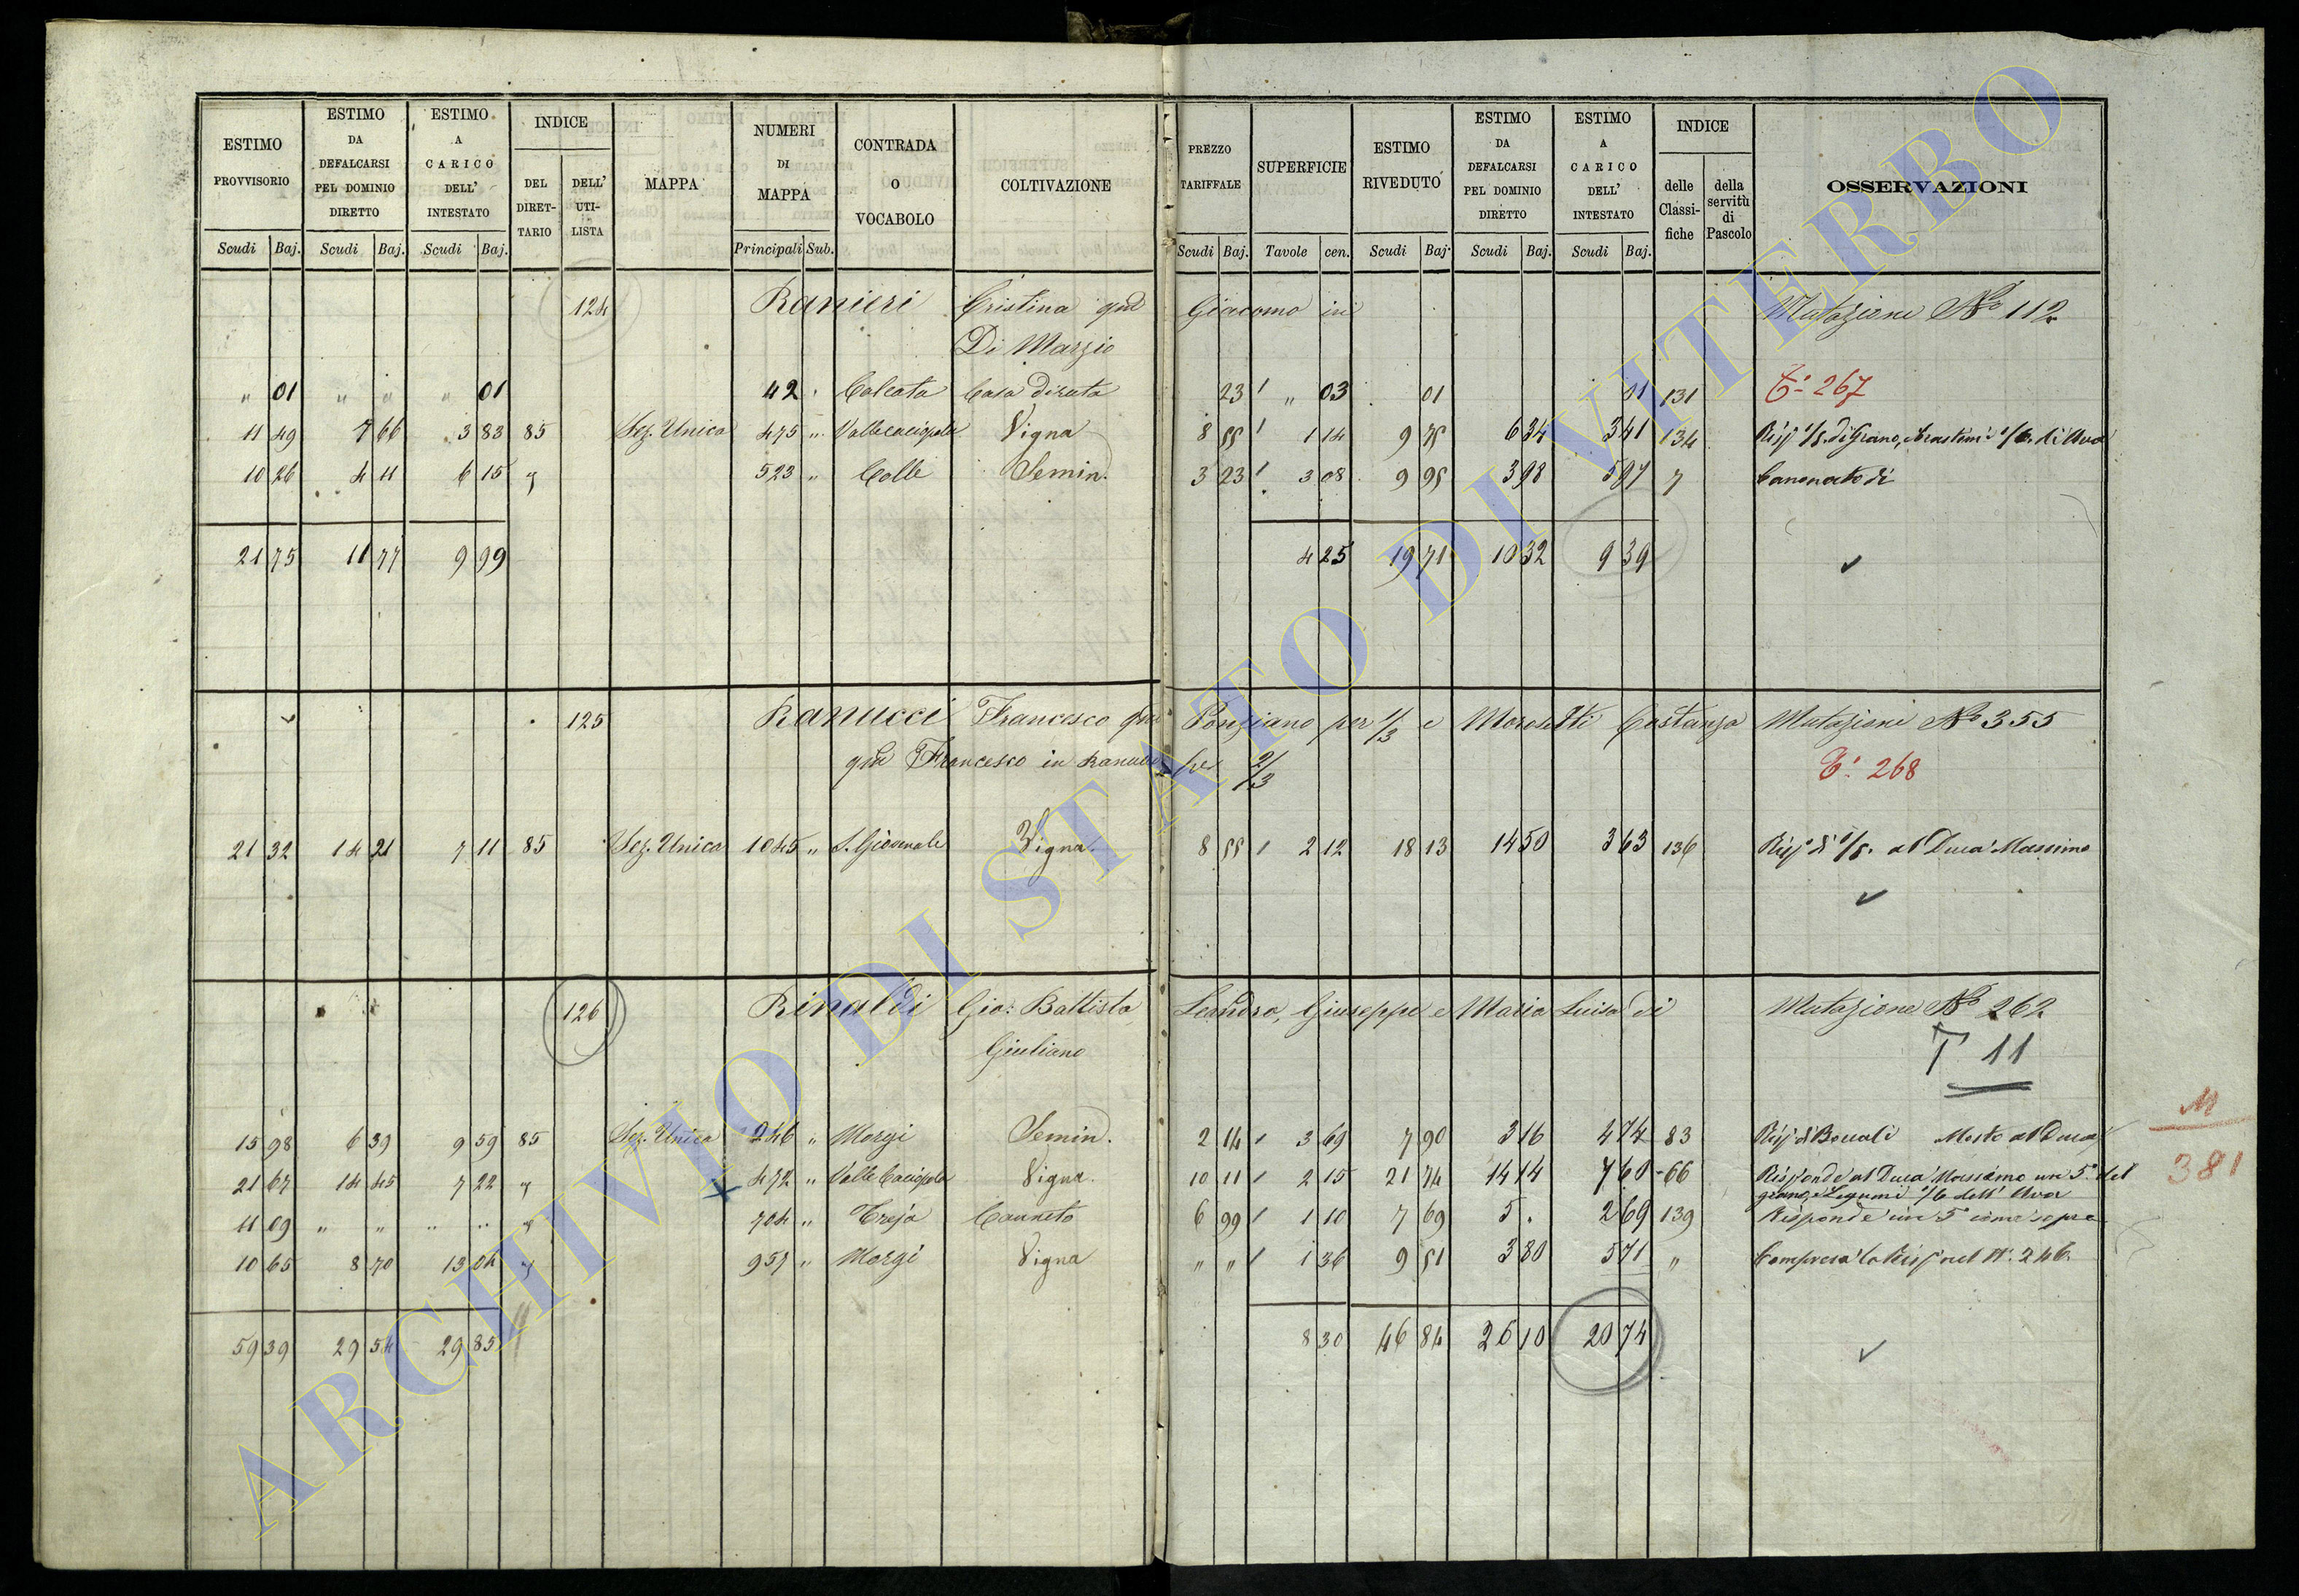 ESTIMO PROVVISORIO Scudi Baj.
ESTIMO DA DEFALCARSI PEL DOMINIO DIRETTO Scudi Baj.
ESTIMO A CARICO DELL' INTESTATO Scudi Baj.
INDICE DEL DIRET-TARIO DELL' UTI-LISTA
MAPPA
NUMERI DI MAPPA Principali Sub.
CONTRADA O VOCABOLO
COLTIVAZIONE
PREZZO TARIFFALE Scudi Baj.
SUPERFICIE Tavole cen.
ESTIMO RIVEDUTO Scudi Baj.
ESTIMO DA DEFALCARSI PEL DOMINIO DIRETTO Scudi Baj.
ESTIMO A CARICO DELL' INTESTATO Scudi Baj.
INDICE delle Classi-fiche della servitù di Pascolo
OSSERVAZIONI
124 Ranieri Cristina qm Giacomo in Mutazione No 112
Di Marzio
" 01 " " " 01 42 " Calcata Casa diruta 23 " 03 01 01 131 267
11 49 7 66 3 83 85 Sez. Unica 475 " Vallecaciopola Vigna 8 55 1 14 9 75 6 34 3 41 134
10 26 4 11 6 15 " 523 " Colle Semin. 3 23 3 08 9 95 3 98 5 97 " Canonato di
21 75 11 77 9 99 4 25 19 71 10 32 9 39
125 Ranucci Francesco qm Ponziano per 1/3 e Morosetti Costanza Mutazioni No 355
qm Francesco in Ranucci per 2/3 268
21 32 14 21 7 11 85 Sez. Unica 1045 " S. Giovenale Vigna. 8 55 2 12 18 13 14 50 3 63 136 Risp. di 1/5. al Duca Massimo
126 Rinaldi Gio: Battista Leandro, Giuseppe e Maria Luisa di Mutazione No 262
Giuliano T 11
15 98 6 39 9 59 85 Sez. Unica 246 " Morgi Semin. 2 14 3 69 7 90 3 16 4 74 83 Mosto al Duca M
21 67 14 45 7 22 " 472 " Valle Caciopola Vigna. 10 11 2 15 21 74 14 14 7 60 66 Risponde al Duca Massimo un 5° del 381
grano, e Legumi 1/6 dell' Uva
11 09 " " " " " 704 " Treja Canneto 6 99 1 10 7 69 5 . 2 69 139 Risponde un 5° come sopra
10 65 8 70 13 04 " 957 " Morgi Vigna " " 1 36 9 51 3 80 5 71 " Compresa la Risp. nel N. 246.
59 39 29 54 29 85 8 30 46 84 26 10 20 74
ARCHIVIO DI STATO DI VITERBO